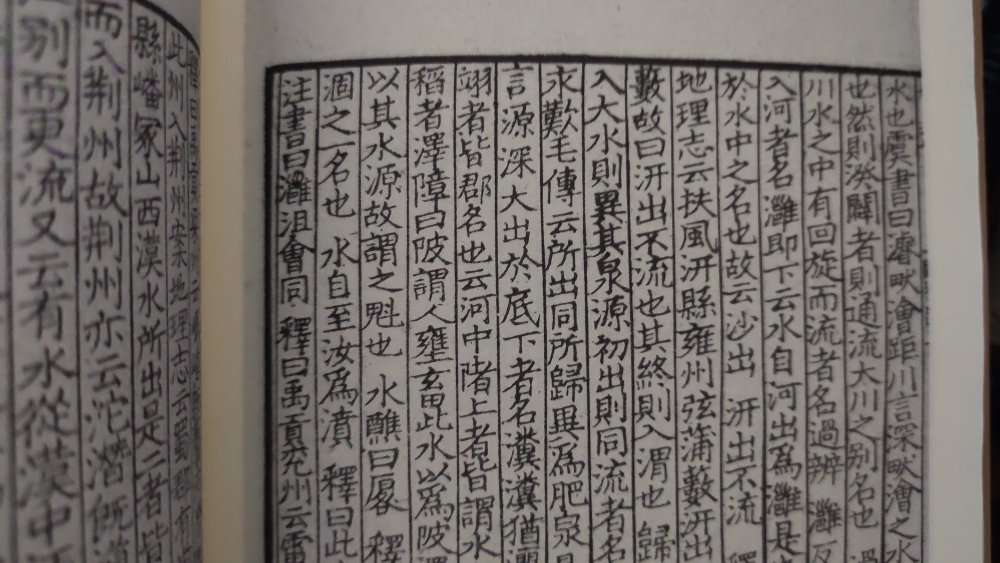 水也虞書曰濬畎澮距川言深畎澮之水
也然則湀闢者則通流大川之別名也 過
川水之中有回旋而流者名過辨 灉反
入河者名灉即下云水自河出爲灉是
於水中之名也故云沙出 汧出不流 釋
地理志云扶風汧縣雍州弦蒲藪汧出
藪故曰汧出不流也其終則入渭也 歸
入大水則異其泉源初出則同流者名
求歎毛傳云所出同所歸異爲肥泉
言源深大出於底下者名瀵瀵猶灑
翊者皆郡名也云河中陼上者皆謂水
稻者澤障曰陂謂人壅畜此水以爲陂
以其水源故謂之魁也 水醮曰厬 釋
涸之一名也 水自至汝爲濆 釋曰此
注書曰灉沮會同 釋曰禹貢兗州云雷
此州入荆州案地理志云蜀郡有
縣嶓冢山西漢水所出是二者皆
而入荆州故荆州亦云沱潛既
別而更流又云有水從漢中